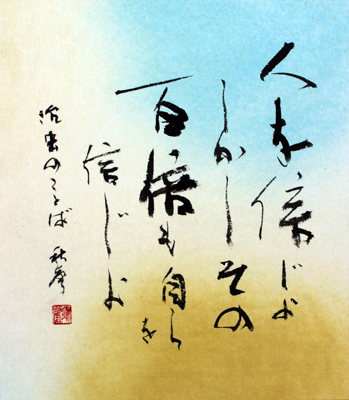 人を信じよ
しかしその
百倍も自らを
信じよ
治虫のことば